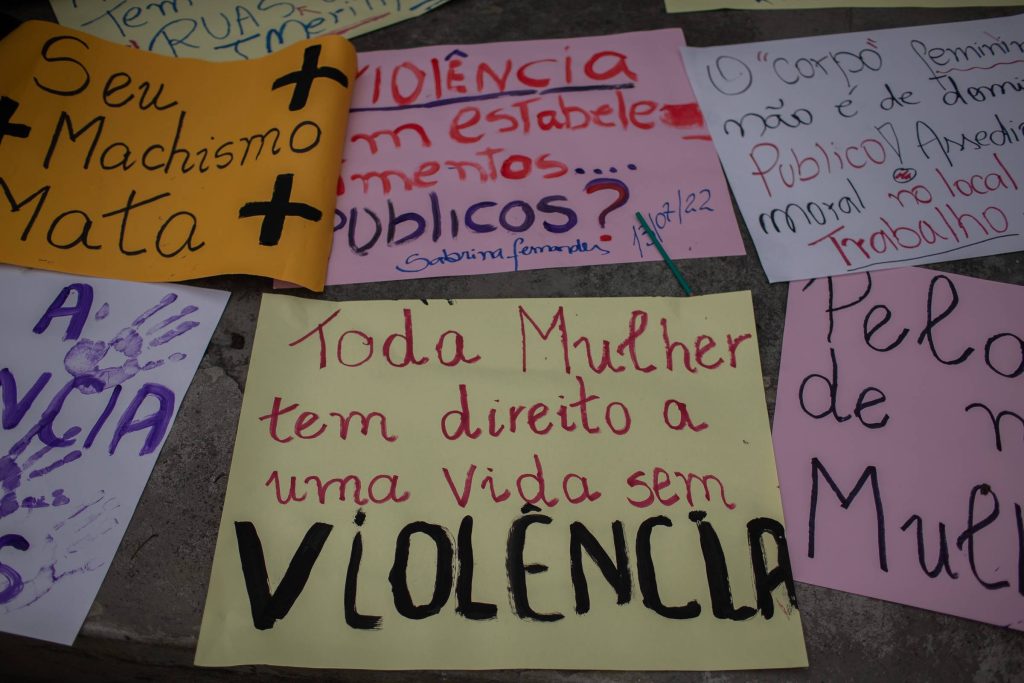 Tem
RUAS
Seu
Machismo
Mata
VIOLÊNCIA
Em ESTABELE
imentos....
PÚBLICOS?
Sabrina fernandes 13/07/22
O "corpo" feminin
não é de domi
Público! Assedi
moral no local
Trabalho
A
NCIA
S
Toda Mulher
tem direito a
uma vida sem
VIOLÊNCIA
Pelo
de
Mul